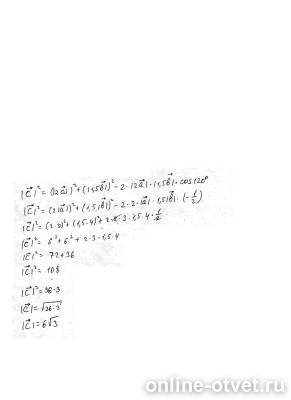 |c⃗|² = (|2a⃗|)² + (|1,5b⃗|)² - 2 · |2a⃗| · |1,5b⃗| · cos 120°
|c⃗|² = (2|a⃗|)² + (1,5|b⃗|)² - 2 · 2·|a⃗| · 1,5|b⃗| · (-1/2)
|c⃗|² = (2·3)² + (1,5·4)² + 2· ·3·1,5·4·1/2
|c⃗|² = 6² + 6² + 2·3·1,5·4
|c⃗|² = 72+36
|c⃗|² = 108
|c⃗|² = 36·3
|c⃗| = √36·3
|c⃗| = 6√3
online-otvet.ru